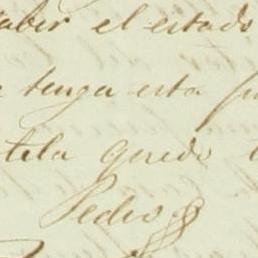 saber el estado
tenga esta
tela quedo
Pedro